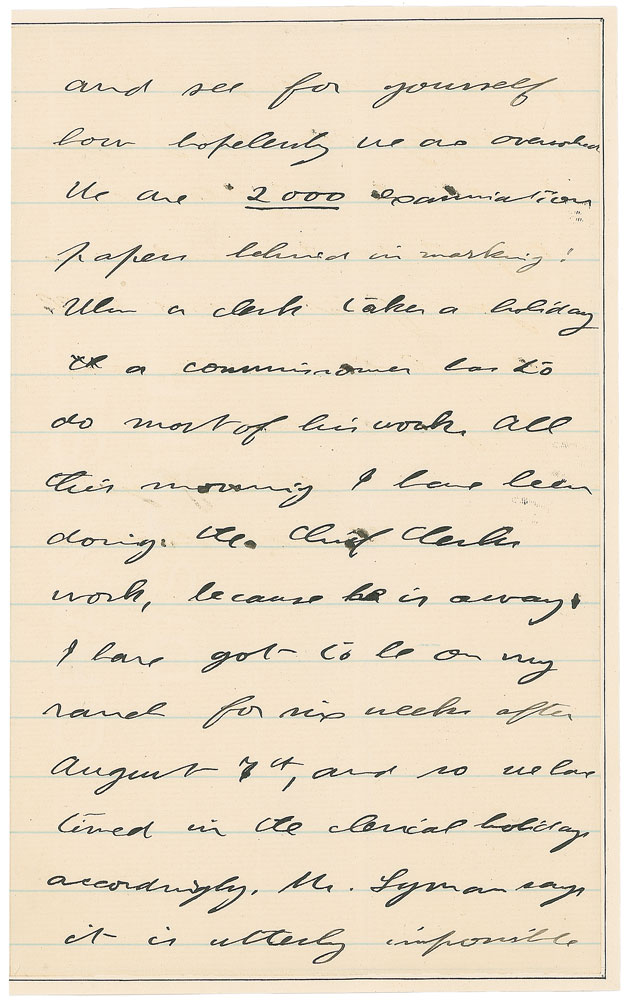 and see for yourself
how hopelessly we are overworked
We are 2000 examination
papers behind in marking!
When a clerk takes a holiday
a commissioner has to
do most of his work. All
this morning I have been
doing the Chief Clerks
work, because he is away.
I have got to be on my
ranch for six weeks after
August 7th, and so we have
timed in the clerical holidays
accordingly. Mr. Lyman says
it is utterly impossible